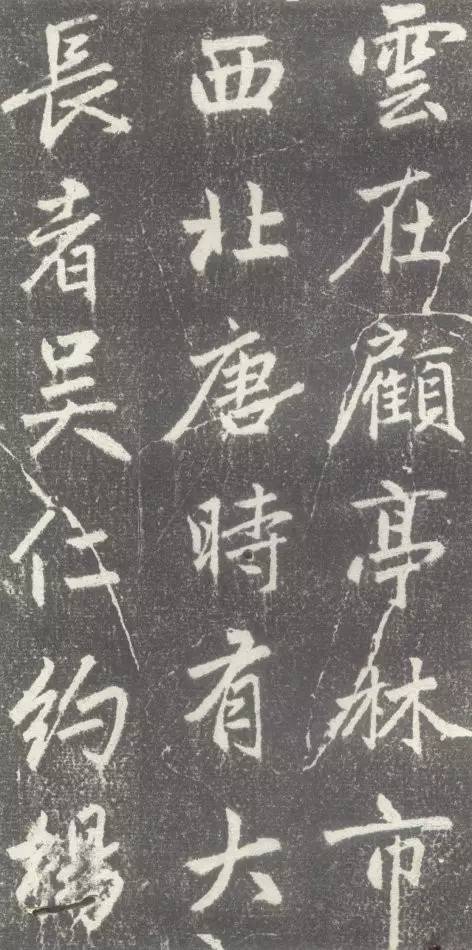 雲在顧亭林市
西北唐時有大
長者吳仁約